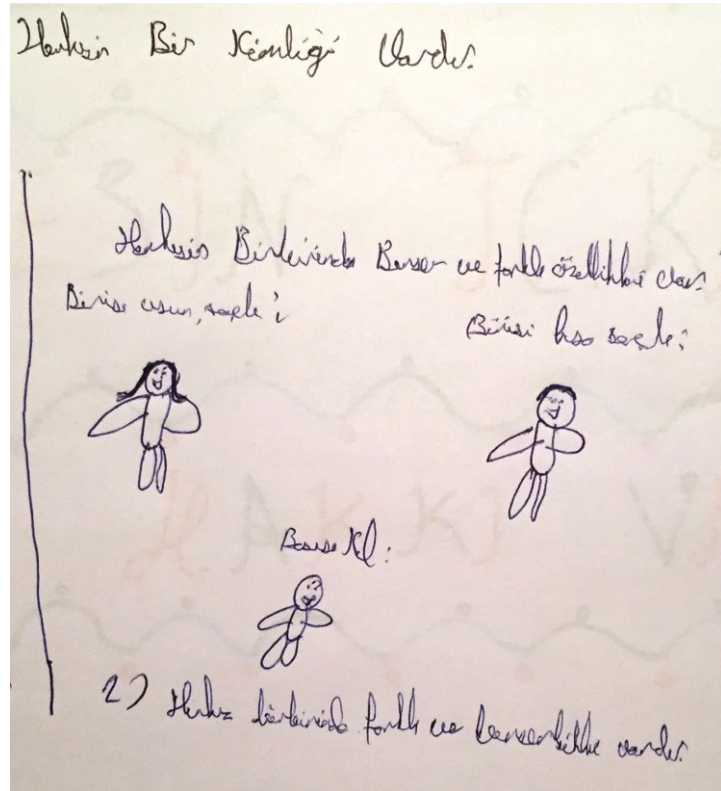 Herkesin Bir Kimliği Vardır.
Herkesin Birleirinde Benzer ve farklı özellikleri var.
Birise uzun, saçlı:
Birisi kısa saçlı:
Birise Kel:
2) Herkez birbirinde farklı ve benzerlikle vardır.